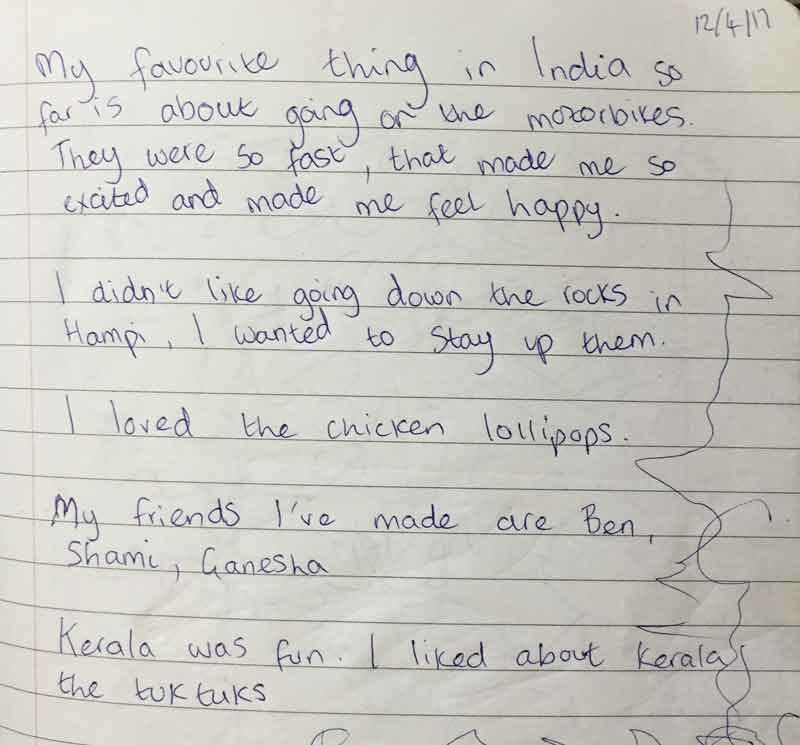 12/4/17
My favourite thing in India so
far is about going on the motorbikes.
They were so fast, that made me so
excited and made me feel happy.
I didn't like going down the rocks in
Hampi, I wanted to stay up them.
I loved the chicken lollipops.
My friends I've made are Ben,
Shami, Ganesha
Kerala was fun. I liked about Kerala
the tuk tuks